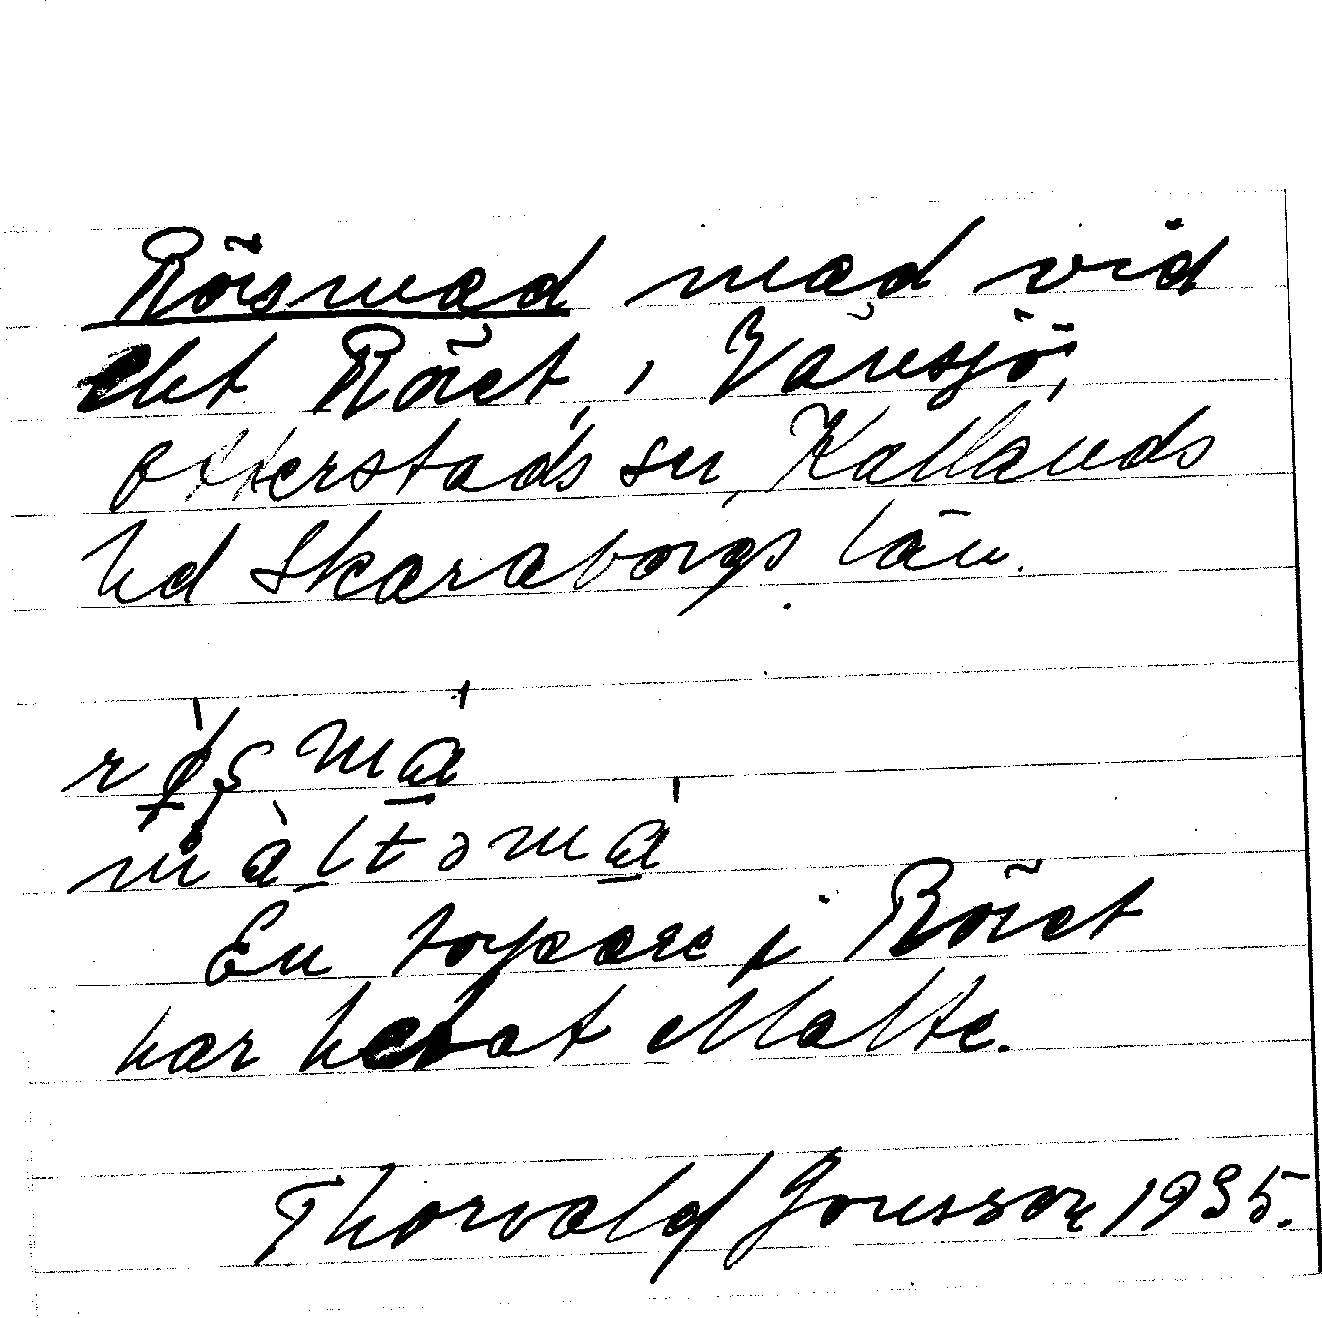 Rörsmad mad vid
tht Röret, i Vänsjö,
Otterstads sn, Kållands
hd Skaraborgs län.
màltəmá
En torpare i Röret
har hetat Malte.
Thorvald Jonsson 1935.